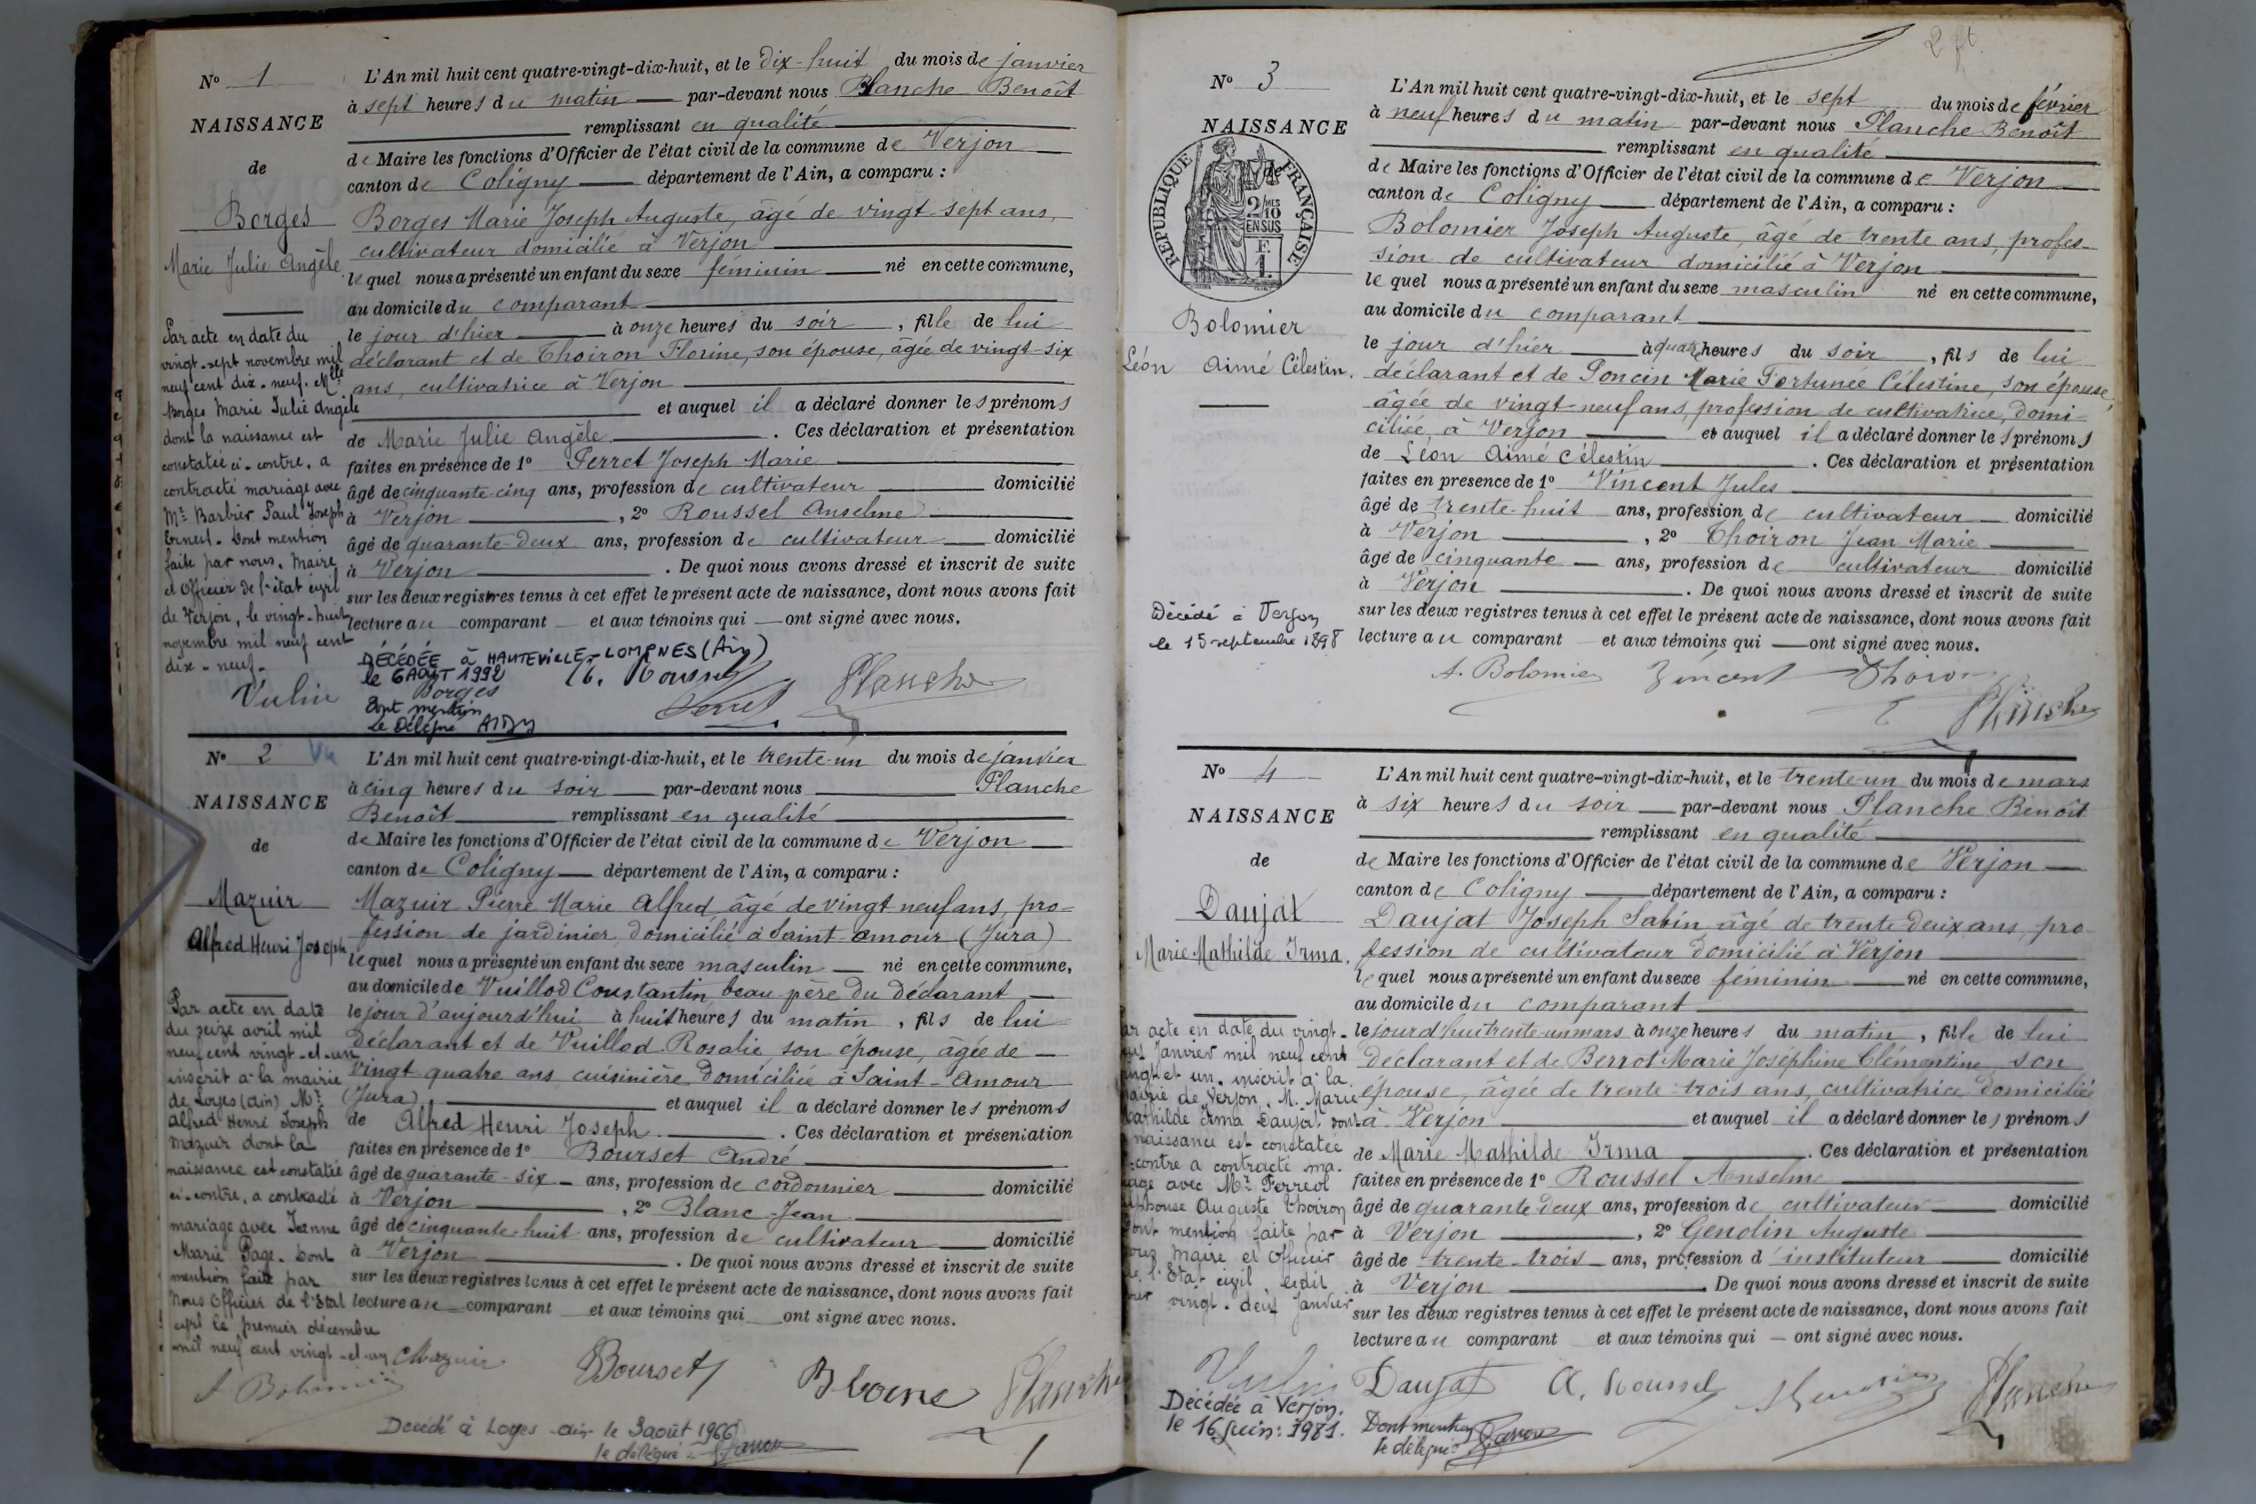 N° 1
NAISSANCE
de
Borges
Marie Julie Angèle
L'An mil huit cent quatre-vingt-dix-huit, et le dix-huit du mois de janvier
à sept heures du matin par-devant nous Planche Benoît
remplissant en qualité
de Maire les fonctions d'Officier de l'état civil de la commune de Verjon
canton de Coligny département de l'Ain, a comparu :
Borges Marie Joseph Auguste, âgé de vingt-sept ans,
cultivateur domicilié à Verjon
lequel nous a présenté un enfant du sexe féminin né en cette commune,
au domicile du comparant
le jour d'hier à onze heures du soir, fille de lui
déclarant et de Thoiron Florine, son épouse, âgée de vingt-six
ans, cultivatrice à Verjon
et auquel il a déclaré donner les prénoms
de Marie Julie Angèle. Ces déclaration et présentation
faites en présence de 1° Perret Joseph Marie
âgé de cinquante-cinq ans, profession de cultivateur domicilié
à Verjon, 2° Roussel Anselme
âgé de quarante-deux ans, profession de cultivateur domicilié
à Verjon. De quoi nous avons dressé et inscrit de suite
sur les deux registres tenus à cet effet le présent acte de naissance, dont nous avons fait
lecture au comparant et aux témoins qui ont signé avec nous.
Par acte en date du
vingt-sept novembre mil
neuf cent dix-neuf. Mlle
Borges Marie Julie Angèle
dont la naissance est
constatée ci-contre, a
contracté mariage avec
Mr Barbier Paul Joseph
Ernest. Dont mention
faite par nous, Maire
et Officier de l'état civil
de Verjon, le vingt-huit
novembre mil neuf cent
dix-neuf-
Vulin
DÉCÉDÉE à HAUTEVILLE-LOMPNES (Ain)
le 6 AOUT 1992
Borges
Dont mention
Le Délégué
A. Roussel
Perret
Planche
N° 2
NAISSANCE
de
Mazuir
Alfred Henri Joseph
L'An mil huit cent quatre-vingt-dix-huit, et le trente-un du mois de janvier
à cinq heures du soir par-devant nous Planche
Benoît remplissant en qualité
de Maire les fonctions d'Officier de l'état civil de la commune de Verjon
canton de Coligny département de l'Ain, a comparu :
Mazuir Pierre Marie Alfred âgé de vingt neuf ans, pro-
fession de jardinier, domicilié à Saint-Amour (Jura)
lequel nous a présenté un enfant du sexe masculin né en cette commune,
au domicile de Vuillod Constantin, beau-père du déclarant
le jour d'aujourd'hui à huit heures du matin, fils de lui
déclarant et de Vuillod Rosalie, son épouse, âgée de
vingt quatre ans, cuisinière, domiciliée à Saint-Amour
(Jura), et auquel il a déclaré donner les prénoms
de Alfred Henri Joseph. Ces déclaration et présentation
faites en présence de 1° Bourset André
âgé de quarante-six ans, profession de cordonnier domicilié
à Verjon, 2° Blanc Jean
âgé de cinquante-huit ans, profession de cultivateur domicilié
à Verjon. De quoi nous avons dressé et inscrit de suite
sur les deux registres tenus à cet effet le présent acte de naissance, dont nous avons fait
lecture au comparant et aux témoins qui ont signé avec nous.
Par acte en date
du seize avril mil
neuf cent vingt-et-un
inscrit à la mairie
de Loyes (Ain) Mr
Alfred Henri Joseph
Mazuir dont la
naissance est constatée
ci-contre, a contracté
mariage avec Jeanne
Marie Page. Dont
mention faite par
Nous Officier de l'Etat
civil le premier décembre
mil neuf cent vingt-et-un
Mazuir
Bourset
Blanc
Planche
Décédé à Loyes Ain le 3 août 1966
le délégué
1
N° 3
NAISSANCE
de
REPUBLIQUE FRANÇAISE
2/10MES
EN SUS
F.
1.
Bolomier
Léon Aimé Célestin.
L'An mil huit cent quatre-vingt-dix-huit, et le sept du mois de février
à neuf heures du matin par-devant nous Planche Benoît
remplissant en qualité
de Maire les fonctions d'Officier de l'état civil de la commune de Verjon
canton de Coligny département de l'Ain, a comparu :
Bolomier Joseph Auguste, âgé de trente ans, profes-
sion de cultivateur domicilié à Verjon
lequel nous a présenté un enfant du sexe masculin né en cette commune,
au domicile du comparant
le jour d'hier à quatre heures du soir, fils de lui
déclarant et de Poncin Marie Fortunée Célestine, son épouse,
âgée de vingt-neuf ans, profession de cultivatrice, domi-
ciliée à Verjon et auquel il a déclaré donner les prénoms
de Léon Aimé Célestin. Ces déclaration et présentation
faites en présence de 1° Vincent Jules
âgé de trente-huit ans, profession de cultivateur domicilié
à Verjon, 2° Thoiron Jean Marie
âgé de cinquante ans, profession de cultivateur domicilié
à Verjon. De quoi nous avons dressé et inscrit de suite
sur les deux registres tenus à cet effet le présent acte de naissance, dont nous avons fait
lecture au comparant et aux témoins qui ont signé avec nous.
Décédé à Verjon
le 15 septembre 1898
A. Bolomier
Vincent
Thoiron
Planche
N° 4
NAISSANCE
de
Daujat
Marie Mathilde Irma.
L'An mil huit cent quatre-vingt-dix-huit, et le trente-un du mois de mars
à six heures du soir par-devant nous Planche Benoît
remplissant en qualité
de Maire les fonctions d'Officier de l'état civil de la commune de Verjon
canton de Coligny département de l'Ain, a comparu :
Daujat Joseph Sabin, âgé de trente-deux ans, pro-
fession de cultivateur domicilié à Verjon
lequel nous a présenté un enfant du sexe féminin né en cette commune,
au domicile du comparant
le jourd'hui trente-un mars à onze heures du matin, fille de lui
déclarant et de Berrot Marie Joséphine Clémentine son
épouse, âgée de trente-trois ans, cultivatrice, domiciliée
à Verjon et auquel il a déclaré donner les prénoms
de Marie Mathilde Irma. Ces déclaration et présentation
faites en présence de 1° Roussel Anselme
âgé de quarante-deux ans, profession de cultivateur domicilié
à Verjon, 2° Genolin Auguste
âgé de trente-trois ans, profession d'instituteur domicilié
à Verjon. De quoi nous avons dressé et inscrit de suite
sur les deux registres tenus à cet effet le présent acte de naissance, dont nous avons fait
lecture au comparant et aux témoins qui ont signé avec nous.
acte en date du vingt-
Janvier mil neuf cent
et un, inscrit à la
de Verjon, M. Marie
Mathilde Irma Daujat dont
naissance est constatée
contre a contracté ma-
avec Mr Ferréol
Auguste Thoiron
Dont mention faite par
Maire et Officier
de l'Etat civil, ledit
vingt-deux Janvier
Vulin
Daujat
A. Roussel
Planche
Décédée à Verjon.
le 16 juin 1981.
Dont mention
le délégué